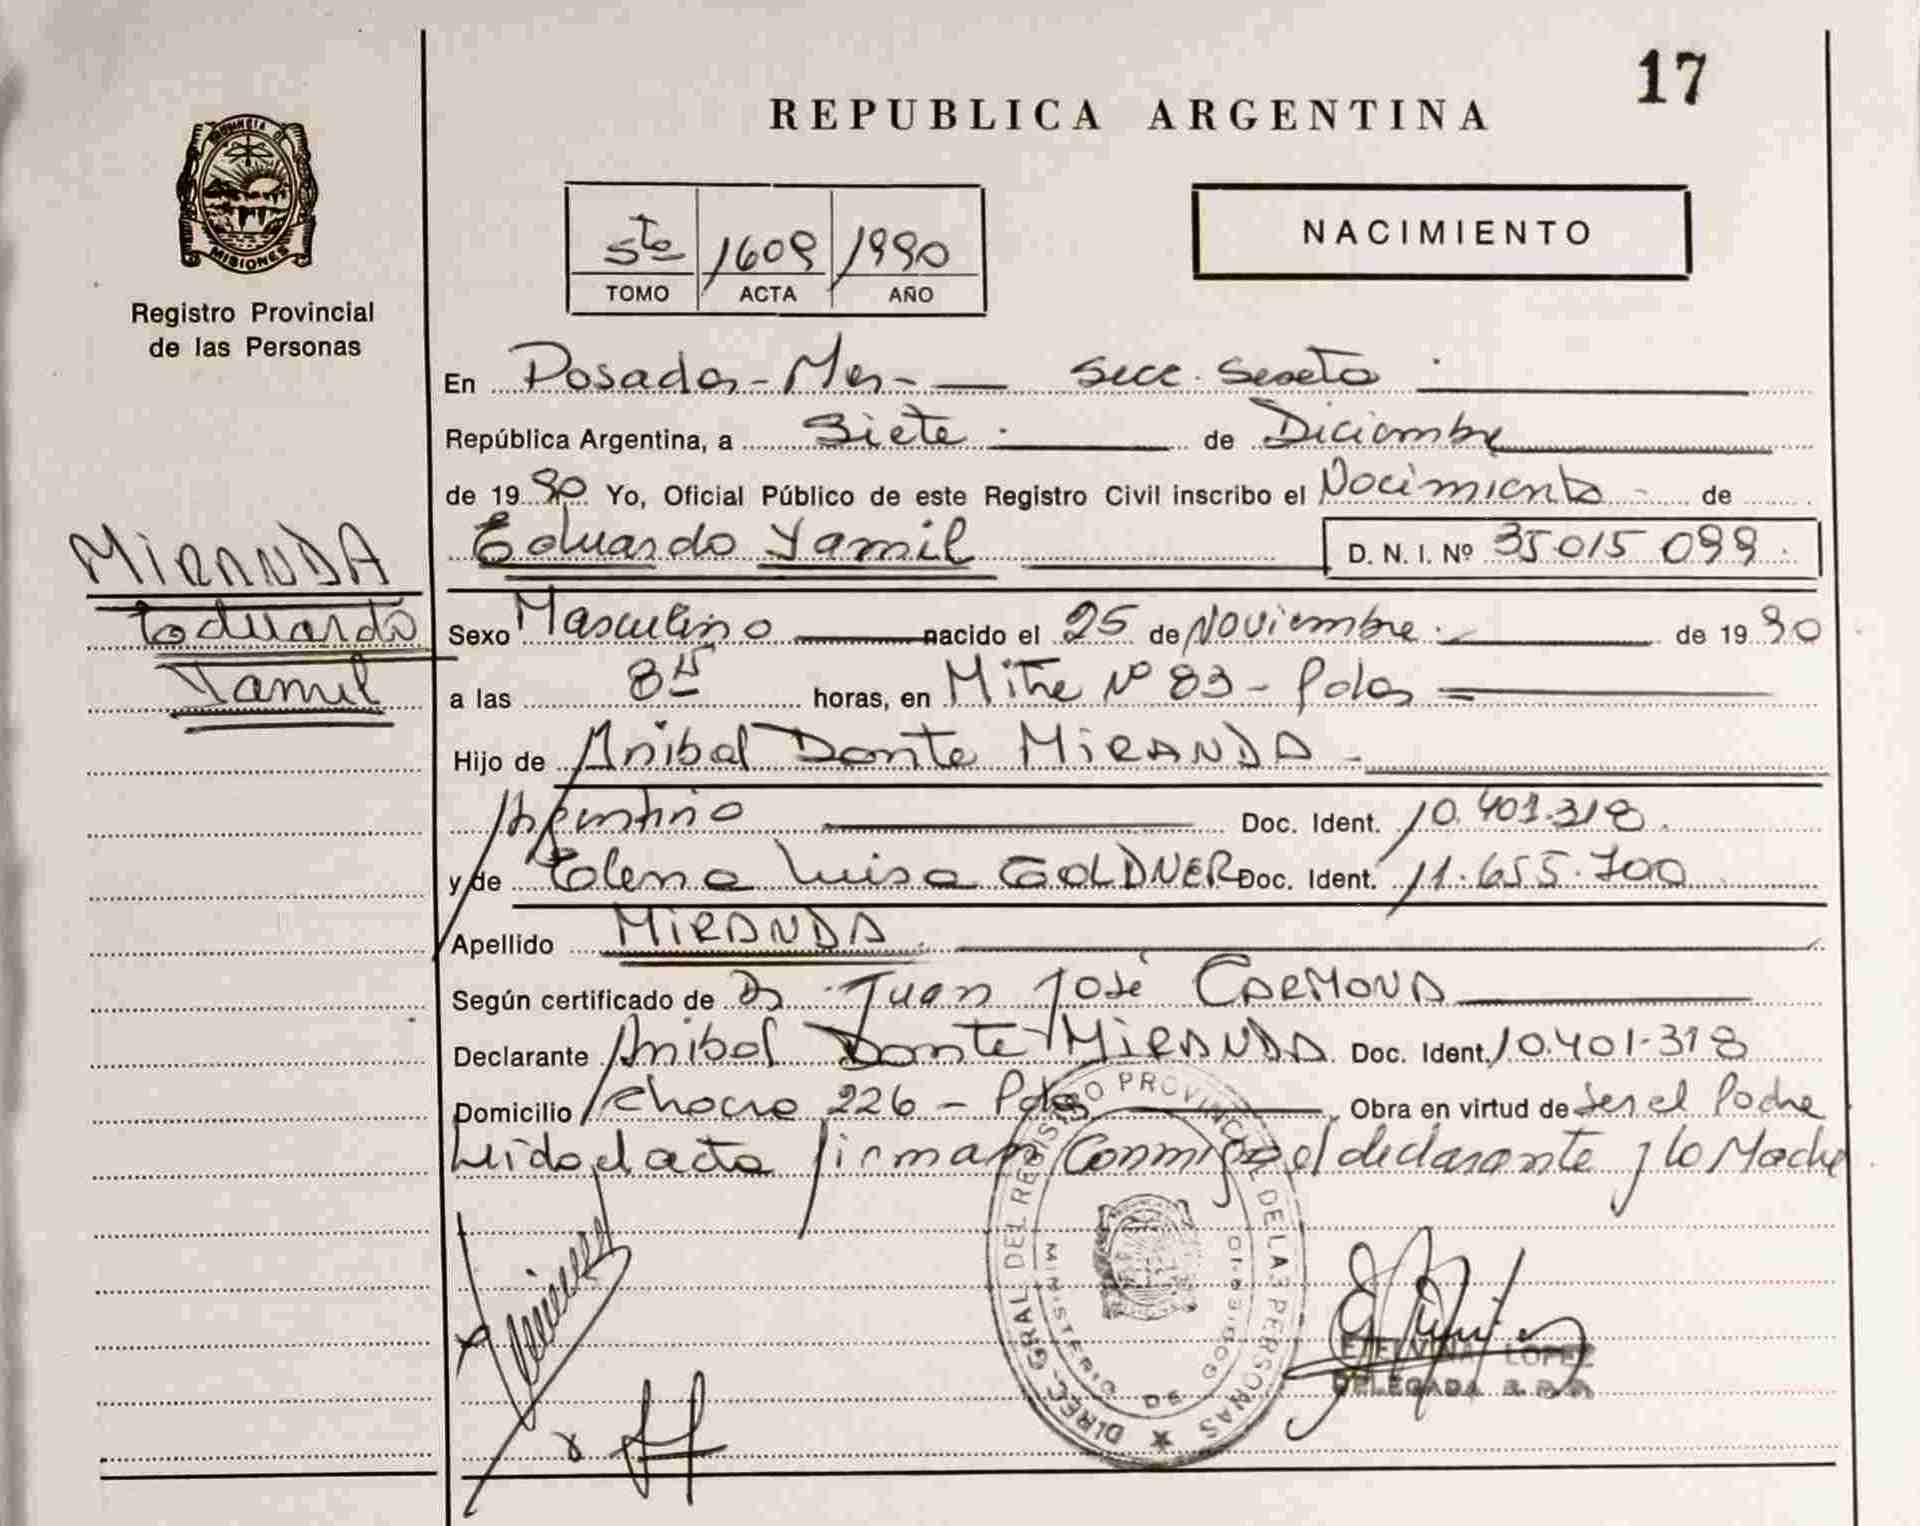 17
REPUBLICA ARGENTINA
PROVINCIA DE
MISIONES
Registro Provincial
de las Personas
5to 1609 1990
TOMO ACTA AÑO
NACIMIENTO
En Posadas - Mnes - Secc. Sexta
República Argentina, a Siete de Diciembre
de 1990 Yo, Oficial Público de este Registro Civil inscribo el Nacimiento de
Eduardo Yamil D. N. I. Nº 35.015.099
MIRANDA
Eduardo
Yamil
Sexo Masculino nacido el 25 de Noviembre de 1990
a las 8 horas, en Mitre Nº 83 - Pdas
Hijo de Anibal Dante MIRANDA
Argentino Doc. Ident. 10.401.318
y de Elena Luisa GOLDNER Doc. Ident. 11.655.700
Apellido MIRANDA
Según certificado de Dr Juan José CARMONA
Declarante Anibal Dante MIRANDA Doc. Ident. 10.401.318
Domicilio Chaco 226 - Pdas Obra en virtud de ser el Padre
Leido el acta firman conmigo el declarante y la Madre
DIREC. GRAL. DEL REGISTRO PROVINCIAL DE LAS PERSONAS
MINISTERIO DE GOBIERNO
ETELVINA LOPEZ
DELEGADA